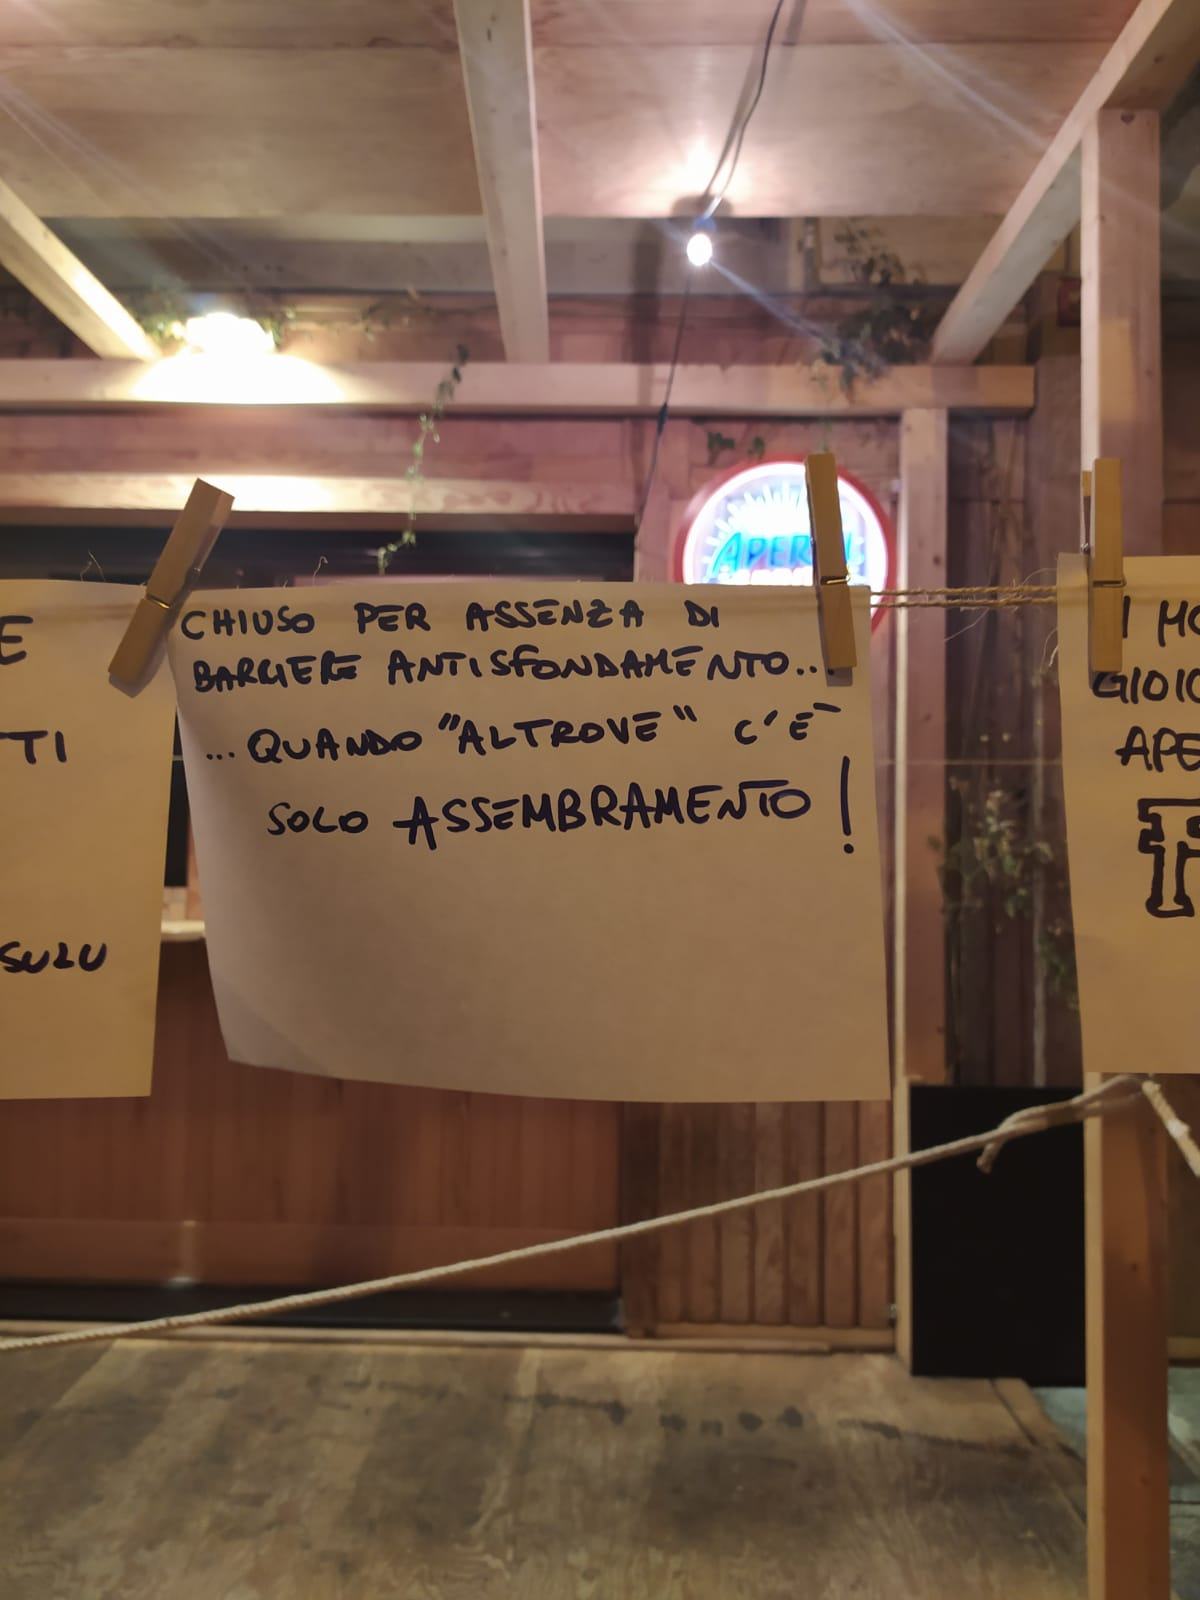 E
TTI
SULU
CHIUSO PER ASSENZA DI
BARRIERE ANTISFONDAMENTO...
... QUANDO "ALTROVE" C'È
SOLO ASSEMBRAMENTO!
APEROL
I MO
GIOIO
APE